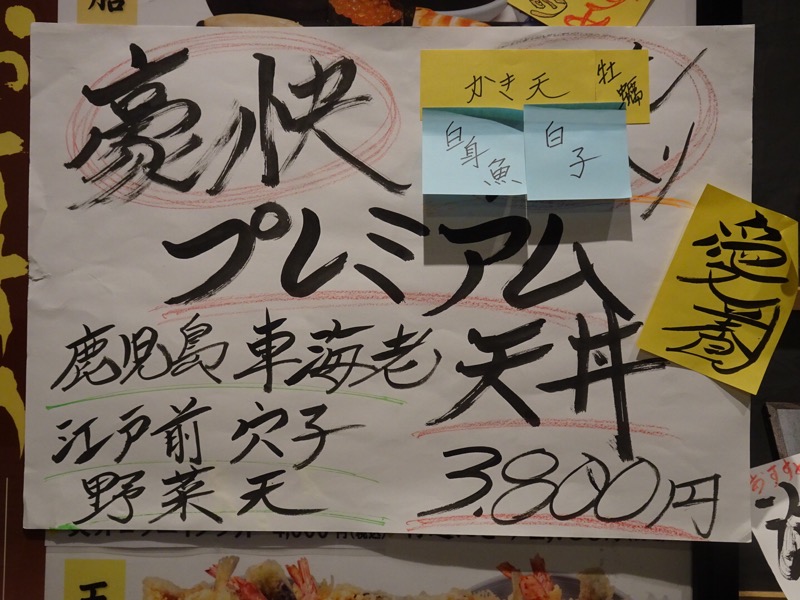 豪快
かき天 牡蠣
白身魚
白子
プレミアム
天丼
鹿児島 車海老
江戸前 穴子
野菜天
3,800円